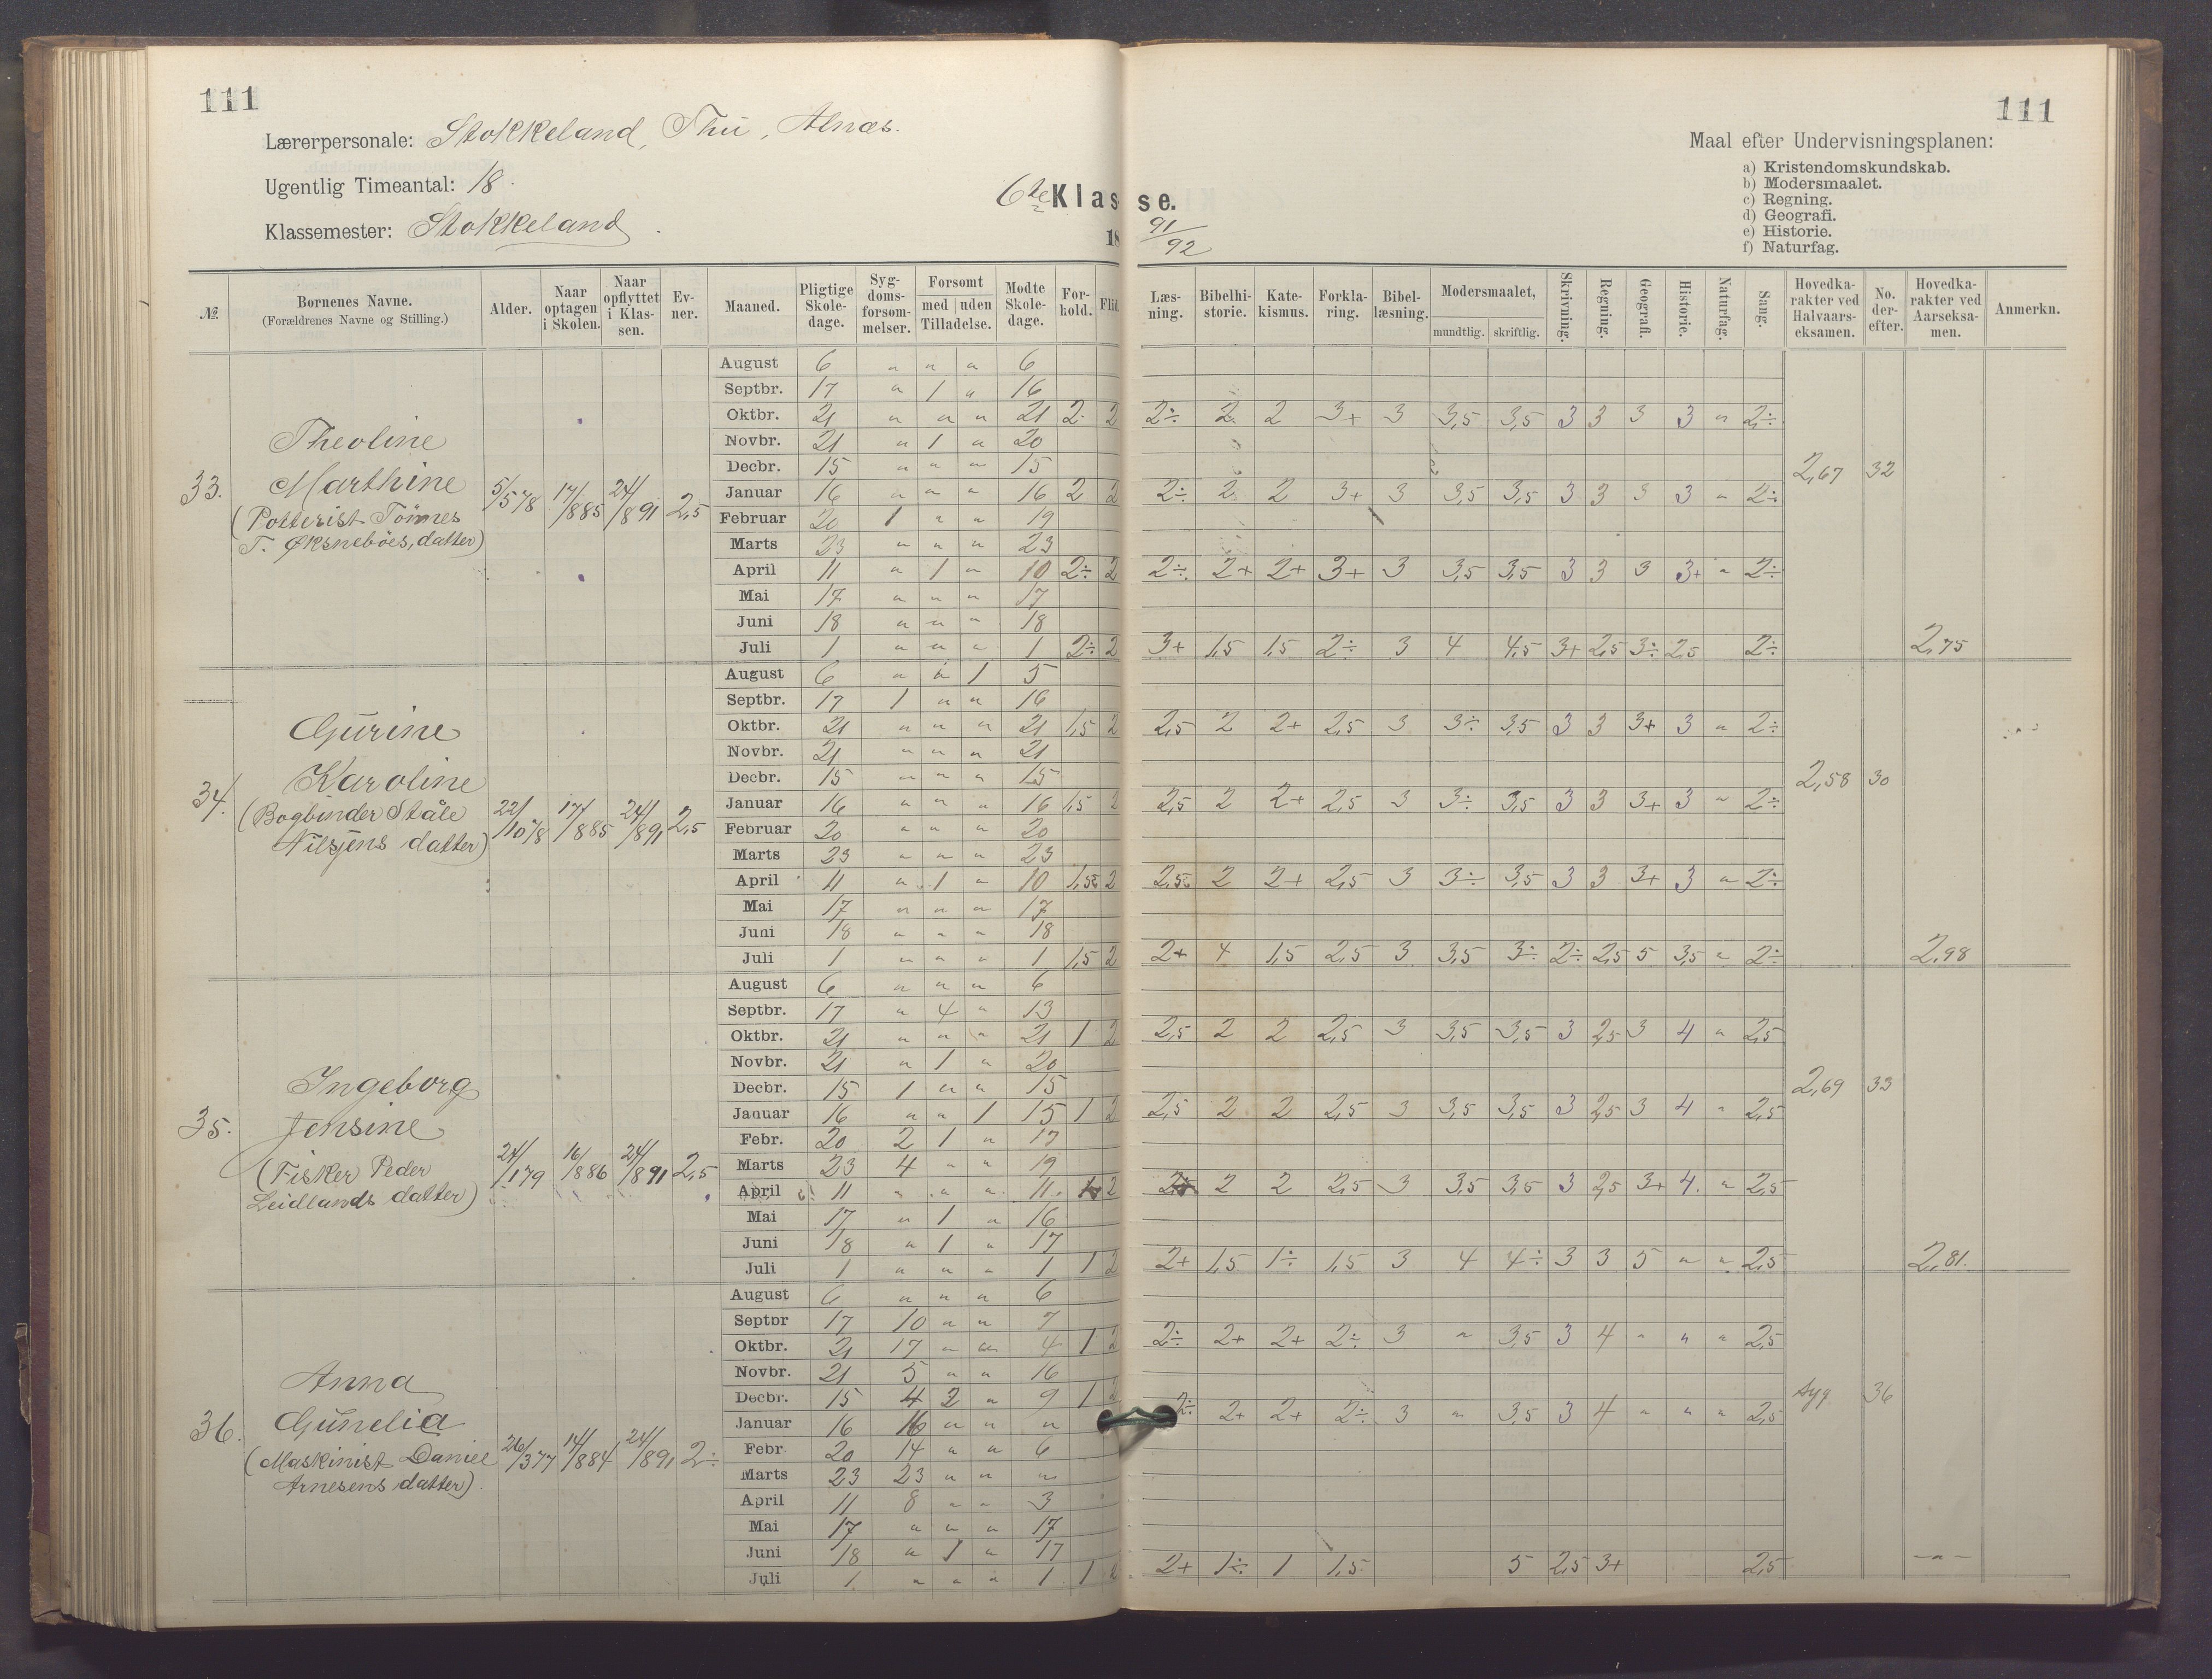 111
111
Lærerpersonale: Stokkeland, Thu, Alnæs.
Ugentlig Timeantal: 18.
Klassemester: Stokkeland.
6te Klasse.
18 91/92
Maal efter Undervisningsplanen:
a) Kristendomskundskab.
b) Modersmaalet.
c) Regning.
d) Geografi.
e) Historie.
f) Naturfag.
№ | Børnenes Navne. (Forældrenes Navne og Stilling.) | Alder. | Naar optagen i Skolen. | Naar opflyttet i Klassen. | Evner. | Maaned. | Pligtige Skoledage. | Sygdomsforsømmelser. | Forsømt med | uden Tilladelse. | Mødte Skoledage. | Forhold. | Flid. | Læsning. | Bibelhistorie. | Katekismus. | Forklaring. | Bibellæsning. | Modersmaalet, mundtlig. | skriftlig. | Skrivning. | Regning. | Geografi. | Historie. | Naturfag. | Sang. | Hovedkarakter ved Halvaarseksamen. | No. derefter. | Hovedkarakter ved Aarseksamen. | Anmerkn.
33. Theoline
Marthine
(Potterist Tönnes
T. Øksneböes, datter)
5/5 78 17/8 85 24/8 91 2,5
August 6 " " " 6
Septbr. 17 " 1 " 16
Oktbr. 21 " " " 21 2 2 2÷ 2 2 3+ 3 3,5 3,5 3 3 3 3 " 2÷
Novbr. 21 " 1 " 20
Decbr. 15 " " " 15
2,67 32
Januar 16 " " " 16 2 2 2÷ 2 2 3+ 3 3,5 3,5 3 3 3 3 " 2÷
Februar 20 1 " " 19
Marts 23 " " " 23
April 11 " 1 " 10 2÷ 2 2÷ 2+ 2+ 3+ 3 3,5 3,5 3 3 3 3+ " 2÷
Mai 17 " " " 17
Juni 18 " " " 18
Juli 1 " " " 1 2÷ 2 3+ 1,5 1,5 2÷ 3 4 4,5 3+ 2,5 3÷ 2,5 2÷ 2,75
34. Gurine
Karoline
(Bogbinder Ståle
Nilsens datter)
22/10 78 17/8 85 24/8 91 2,5
August 6 " " 1 5
Septbr. 17 1 " " 16
Oktbr. 21 " " " 21 1,5 2 2,5 2 2+ 2,5 3 3÷ 3,5 3 3 3+ 3 " 2÷
Novbr. 21 " " " 21
Decbr. 15 " " " 15
2,58 30
Januar 16 " " " 16 1,5 2 2,5 2 2+ 2,5 3 3÷ 3,5 3 3 3+ 3 " 2÷
Februar 20 " " " 20
Marts 23 " " " 23
April 11 " 1 " 10 1,5 2 2,5 2 2+ 2,5 3 3÷ 3,5 3 3 3+ 3 " 2÷
Mai 17 " " " 17
Juni 18 " " " 18
Juli 1 " " " 1 1,5 2 2+ 4 1,5 2,5 3 3,5 3÷ 2÷ 2,5 5 3,5 " 2÷ 2,98
35. Ingeborg
Jensine
(Fisker Peder
Leidlands datter)
24/1 79 16/8 86 24/8 91 2,5
August 6 " " " 6
Septbr. 17 " 4 " 13
Oktbr. 21 " " " 21 1 2 2,5 2 2 2,5 3 3,5 3,5 3 2,5 3 4 " 2,5
Novbr. 21 " 1 " 20
Decbr. 15 1 " " 15
2,69 33
Januar 16 " " 1 15 1 2 2,5 2 2 2,5 3 3,5 3,5 3 2,5 3 4 " 2,5
Febr. 20 2 1 " 17
Marts 23 4 " " 19
April 11 " " " 11 2 2 2 2,5 3 3,5 3,5 3 2,5 3+ 4 " 2,5
Mai 17 " 1 " 16
Juni 18 " 1 " 17
Juli 1 " " " 1 1 2 2+ 1,5 1÷ 1,5 3 4 4÷ 3 3 5 " " 2,5 2,81.
36. Anna
Gunelia
(Maskinist Daniel
Arnesens datter).
26/3 77 14/8 84 24/8 91 2÷
August 6 " " " 6
Septbr 17 10 " " 7
Oktbr. 21 17 " " 4 1 2 2÷ 2+ 2+ 2÷ 3 " 3,5 3 4 " " " 2,5
Novbr. 21 5 " " 16
Decbr. 15 4 2 " 9 1 2
syg 36
2÷ 2+ 2+ 2÷ 3 " 3,5 3 4 " " " 2,5
Januar 16 16 " " "
Febr 20 14 " " 6
Marts 23 23 " " "
April 11 8 " " 3
Mai 17 " " " 17
Juni 18 " 1 " 17
Juli 1 " " " 1 1 2 2+ 1÷ 1 1,5 5 2,5 3+ 2,5 -"-